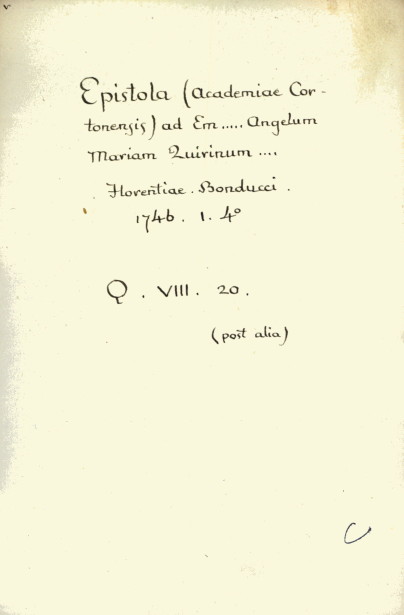 Epistola (Academiae Cor-
tonensis) ad Em..... Angelum
Mariam Quirinum ....
. Florentiae . Bonducci .
1746 . 1. 4º
Q . VIII . 20 .
(post alia)
C